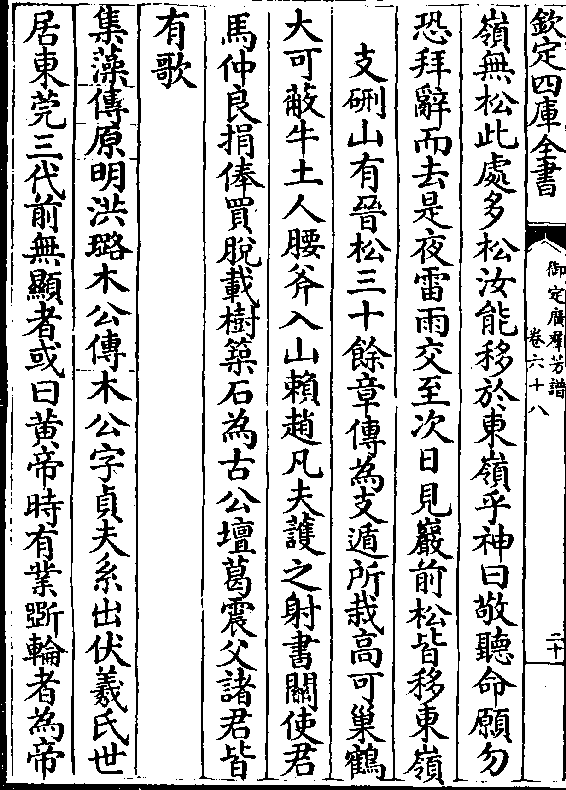 欽定四庫全書
御定廣羣芳譜
卷六十八
二十
嶺無松此處多松汝能移於東嶺乎神曰敬聽命願勿
恐拜辭而去是夜雷雨交至次日見巖前松皆移東嶺
支硎山有晉松三十餘章傳為支遁所栽高可巢鶴
大可蔽牛土人腰斧入山賴趙凡夫護之射書關使君
馬仲良捐俸買脫載樹築石為古公壇葛震父諸君皆
有歌
集藻傳原明洪璐木公傳木公字貞夫系出伏羲氏世
居東莞三代前無顯者或曰黄帝時有業斵輪者為帝